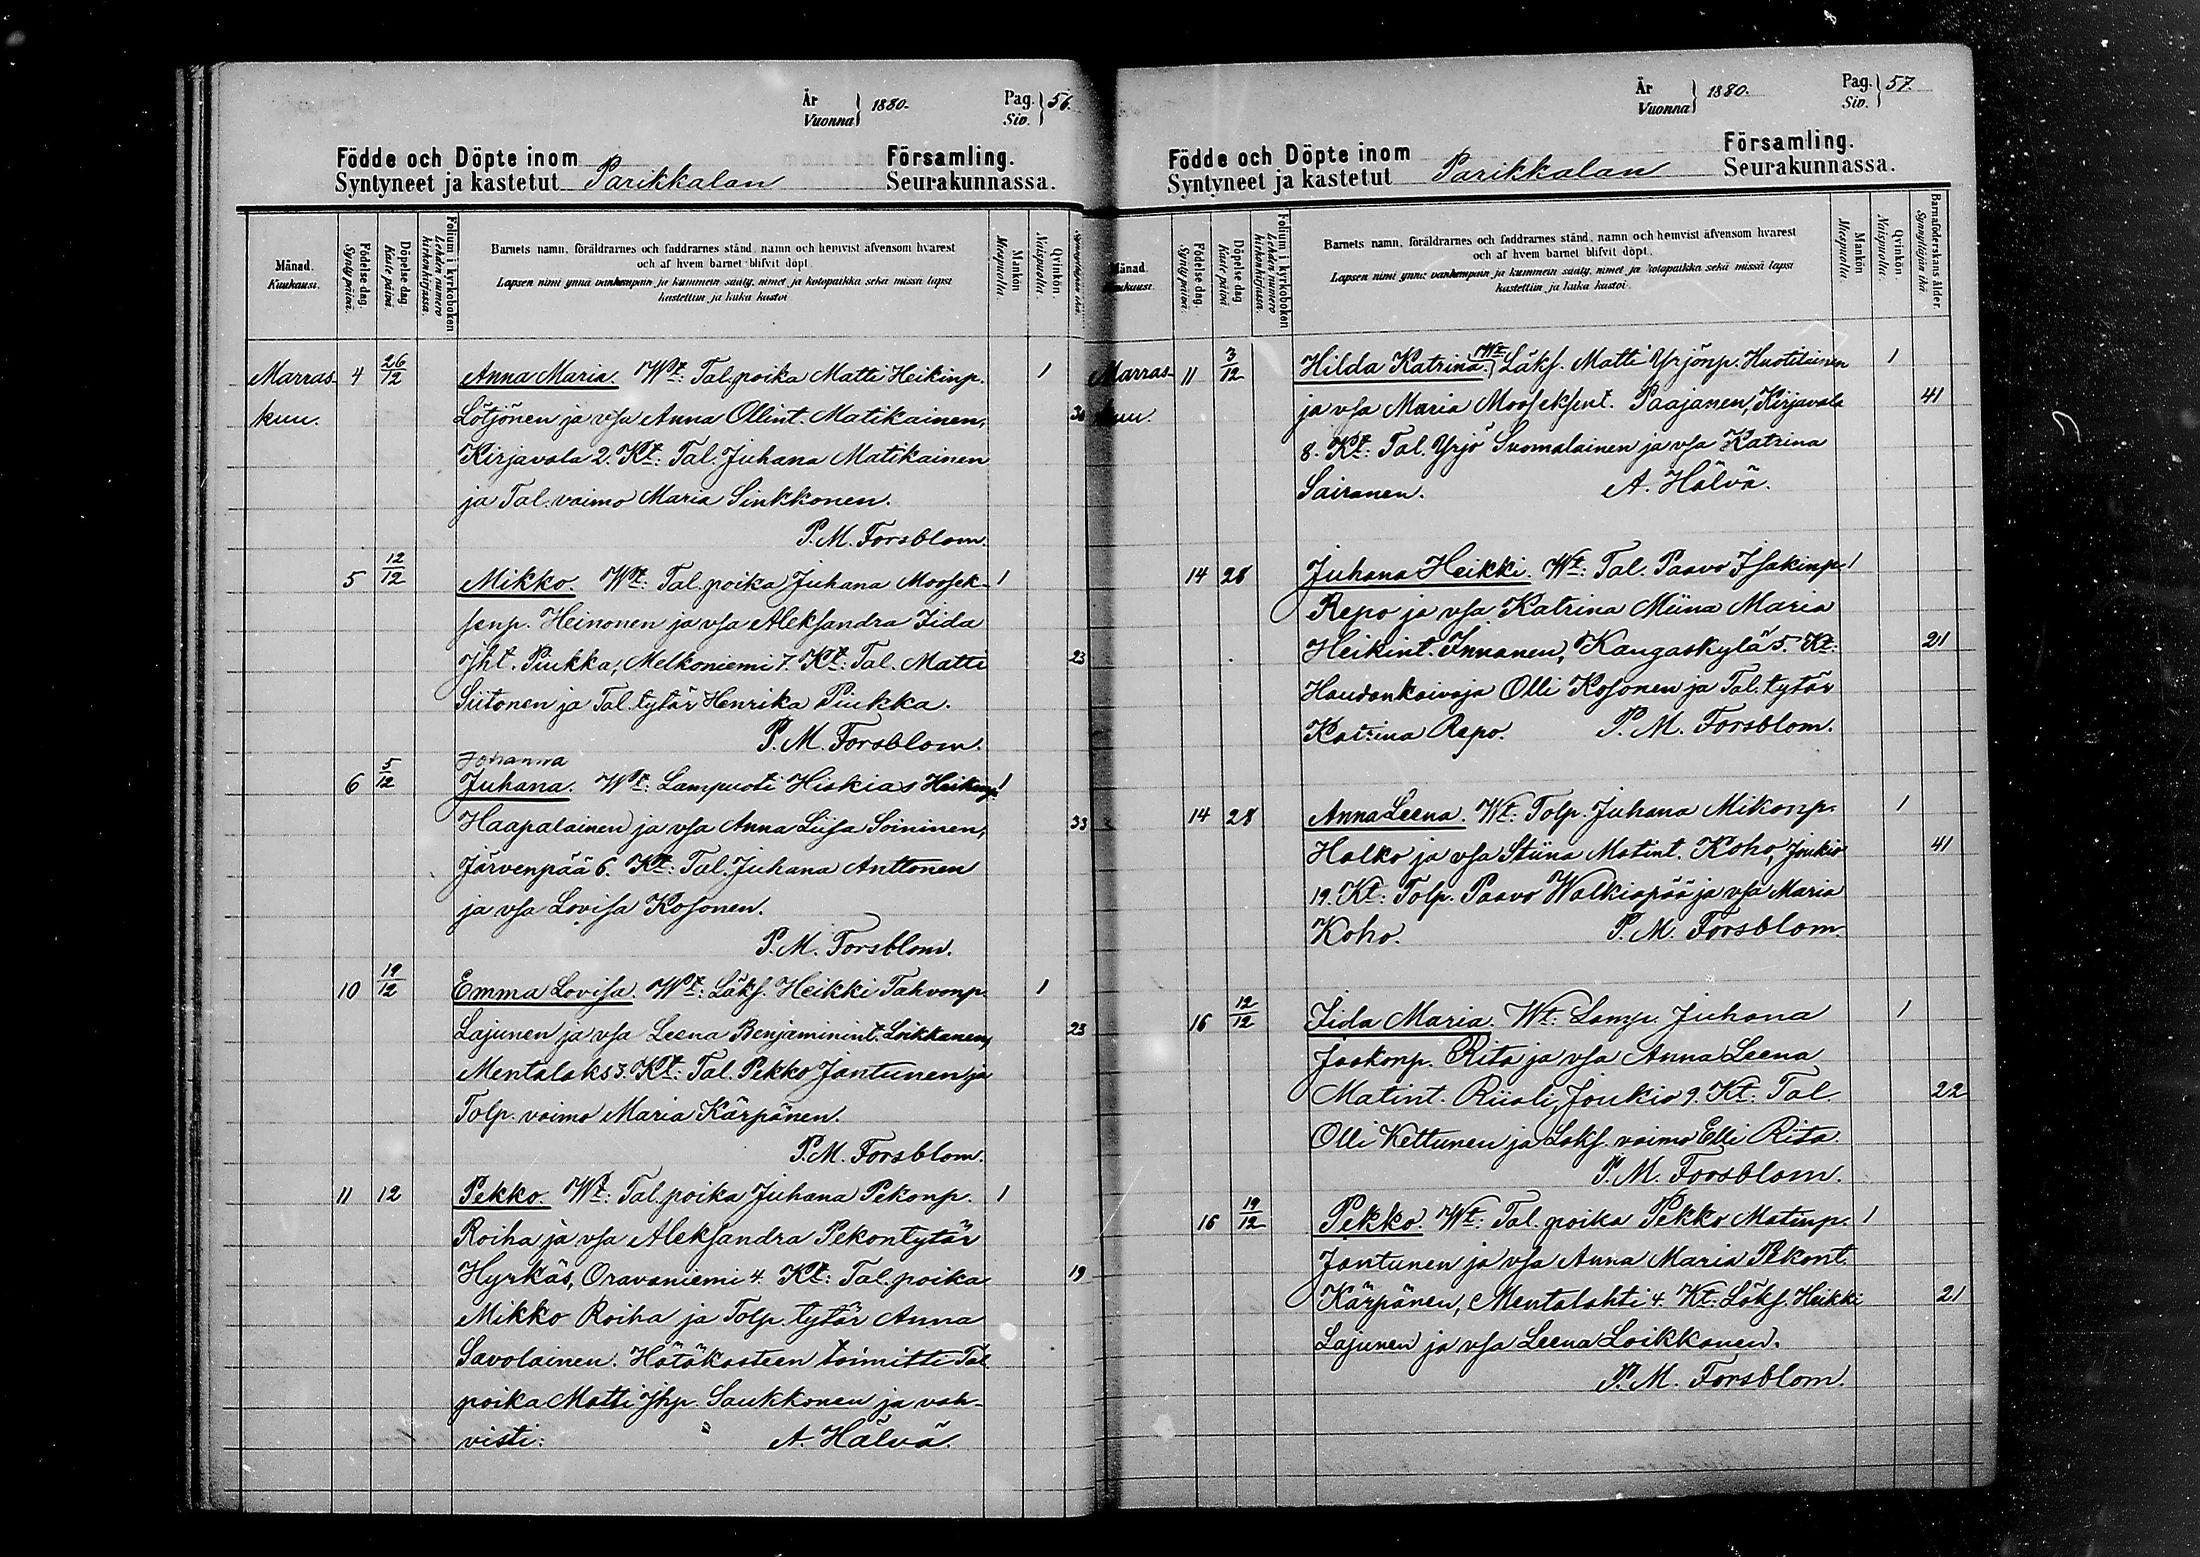 År
Vuonna } 1880.
Pag.
Siv. } 56.
Födde och Döpte inom Församling.
Syntyneet ja kastetut Parikkalan Seurakunnassa.
Månad.
Kuukausi.
Födelse dag.
Syntypäivä.
Döpelse dag.
Kaste päivä.
Folium i kyrkoboken
Lehden numero
kirkonkirjassa.
Barnets namn, föräldrarnes och faddrarnes stånd, namn och hemvist äfvensom hvarest
och af hvem barnet blifvit döpt.
Lapsen nimi ynnä vanhempain ja kummein sääty, nimet ja kotopaikka sekä missä lapsi
kastettiin ja kuka kastoi.
Mankön
Miespuolia.
Qvinkön.
Naispuolia.
Marras- 4 26/12 Anna Maria. Wt: Tal. poika Matti Heikinp. 1
kuu. Lötjönen ja vsa Anna Ollint. Matikainen, 30
Kirjavala 2. Kt: Tal. Juhana Matikainen
ja Tal. vaimo Maria Sinkkonen.
P. M. Forsblom.
5 12/12 Mikko. Wt: Tal. poika Juhana Moosek- 1
senp. Heinonen ja vsa Aleksandra Iida
Jht. Piukka, Melkoniemi 7. Kt: Tal. Matti 23
Siitonen ja Tal. tytär Henrika Piukka.
P. M. Forsblom.
Johanna
6 5/12 Juhana. Wt: Lampuoti Hiskias Heikinp. 1
Haapalainen ja vsa Anna Liisa Soininen, 33
Järvenpää 6. Kt: Tal. Juhana Anttonen
ja vsa Lovisa Kosonen.
P. M. Forsblom.
10 19/12 Emma Lovisa. Wt: Läks. Heikki Tahvonp. 1
Lajunen ja vsa Leena Benjaminint. Loikkanen, 23
Mentalaks 3. Kt: Tal. Pekko Jantunen ja
Tolp. vaimo Maria Kärpänen.
P. M. Forsblom.
11 12 Pekko. Wt: Tal. poika Juhana Pekonp. 1
Roiha ja vsa Aleksandra Pekontytär
Hyrkäs, Oravaniemi 4. Kt: Tal. poika 19
Mikko Roiha ja Tolp. tytär Anna
Savolainen. Hätäkasteen toimitti Tal.
poika Matti Jhp. Saukkonen ja vah-
visti: A. Hälvä.
År
Vuonna } 1880.
Pag.
Siv. } 57.
Födde och Döpte inom Församling.
Syntyneet ja kastetut Parikkalan Seurakunnassa.
Månad.
Kuukausi.
Födelse dag.
Syntypäivä.
Döpelse dag.
Kaste päivä.
Folium i kyrkoboken
Lehden numero
kirkonkirjassa.
Barnets namn, föräldrarnes och faddrarnes stånd, namn och hemvist äfvensom hvarest
och af hvem barnet blifvit döpt.
Lapsen nimi ynnä vanhempain ja kummein sääty, nimet ja kotopaikka sekä missä lapsi
kastettiin ja kuka kastoi.
Mankön
Miespuolia.
Qvinkön.
Naispuolia.
Barnaföderskans ålder.
Synnyttäjän ikä
Marras- 11 3/12 Hilda Katrina. Wt: Läks. Matti Yrjönp. Huotilainen 1
kuu. ja vsa Maria Mooseksent. Paajanen, Kirjavala 41
8. Kt: Tal. Yrjö Suomalainen ja vsa Katrina
Sairanen. A. Hälvä.
14 28 Juhana Heikki. Wt: Tal. Paavo Isakinp. 1
Repo ja vsa Katrina Miina Maria
Heikint. Innanen, Kangaskylä 5. Kt: 21
Haudankaivaja Olli Kosonen ja Tal. tytär
Katrina Repo. P. M. Forsblom.
14 28 Anna Leena. Wt: Tolp. Juhana Mikonp. 1
Halko ja vsa Stiina Matint. Koho, Joukio 41
19. Kt: Tolp. Paavo Walkiapää ja vsa Maria
Koho. P. M. Forsblom.
16 12/12 Iida Maria. Wt: Lamp. Juhana 1
Jaakonp. Rita ja vsa Anna Leena
Matint. Riiali, Joukio 9. Kt: Tal. 22
Olli Kettunen ja Laks. vaimo Elli Rita.
P. M. Forsblom.
16 19/12 Pekko. Wt: Tal. poika Pekko Matinp. 1
Jantunen ja vsa Anna Maria Pekont.
Kärpänen, Mentalahti 4. Kt: Läks. Heikki 21
Lajunen ja vsa Leena Loikkanen.
P. M. Forsblom.